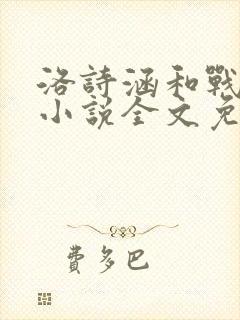 洛詩涵和戰
小說全文免
費多巴